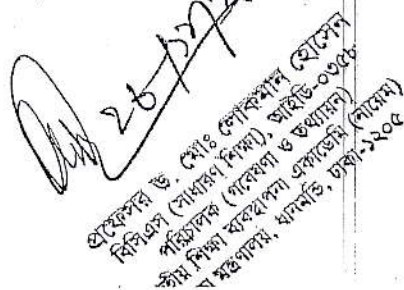 প্রফেসর ড. মো: লোকমান হোসেন
বিসিএস (সাধারণ শিক্ষা), আইডি-০৩৫৮
পরিচালক (গবেষণা ও তথ্যায়ন)
শিক্ষা ব্যবস্থাপনা একাডেমি (নায়েম)
মন্ত্রণালয়, ধানমন্ডি, ঢাকা-১২০৫